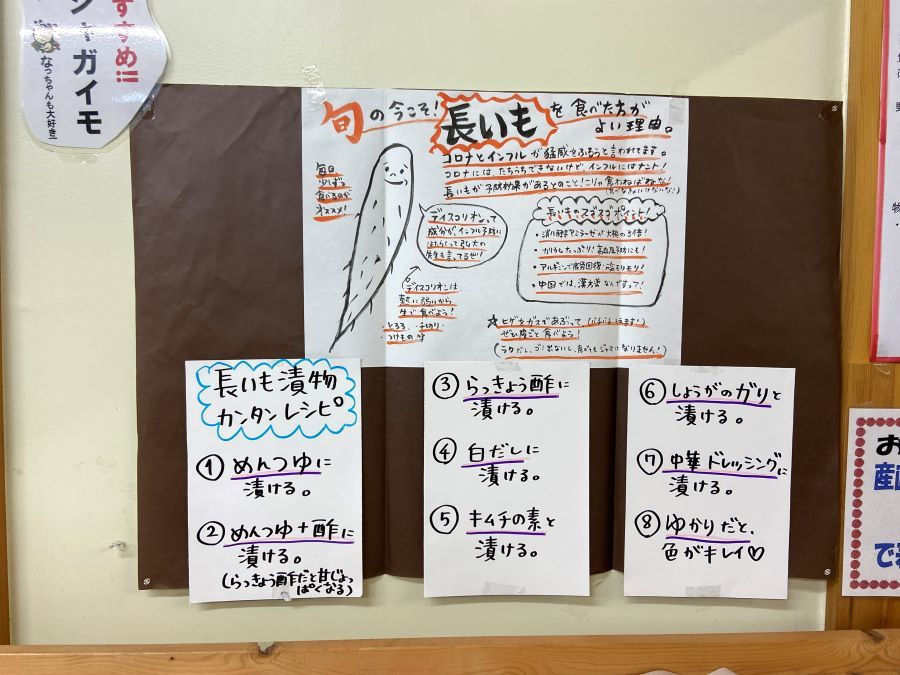 すすめ!!
ン・ガイモ
なっちゃんも大好き
旬の今こそ!
長いも
を食べた方が
よい理由。
コロナとインフルが猛威をふるうと言われてます。
コロナには、たちうちできないけど、インフルにはナント!
長いもが予防効果があるとのこと!こりゃ食わねばねな!
毎日
少しずつ
食べるのが
オススメ!
ディスコリオンって
成分が、インフル予防に
はたらくって弘大の
先生も言ってる世!
長いものスゴスゴポイント!
・消化酵素アミラーゼが大根の3倍!
・カリウムたっぷり!高血圧予防にも!
・アルギニンで疲労回復・滋養もりもり!
・中国では、漢方薬なんですって!
ディスコリオンは
熱に弱いから
生で食べよう!
・とろろ ・千切り
・つけもの 等
☆ヒゲをガスであぶって
ぜひ皮ごと食べよう!
(ラクだし、ゴミ出ないし、食べてもジャマになりません!)
長いも漬物
カンタンレシピ
①めんつゆに
漬ける。
②めんつゆ+酢に
漬ける。
(らっきょう酢だと甘じょっ
ぱくなる)
③らっきょう酢に
漬ける。
④白だしに
漬ける。
⑤キムチの素と
漬ける。
⑥しょうがのガリと
漬ける。
⑦中華ドレッシングに
漬ける。
⑧ゆかりだと、
色がキレイ♡
お
産直
で